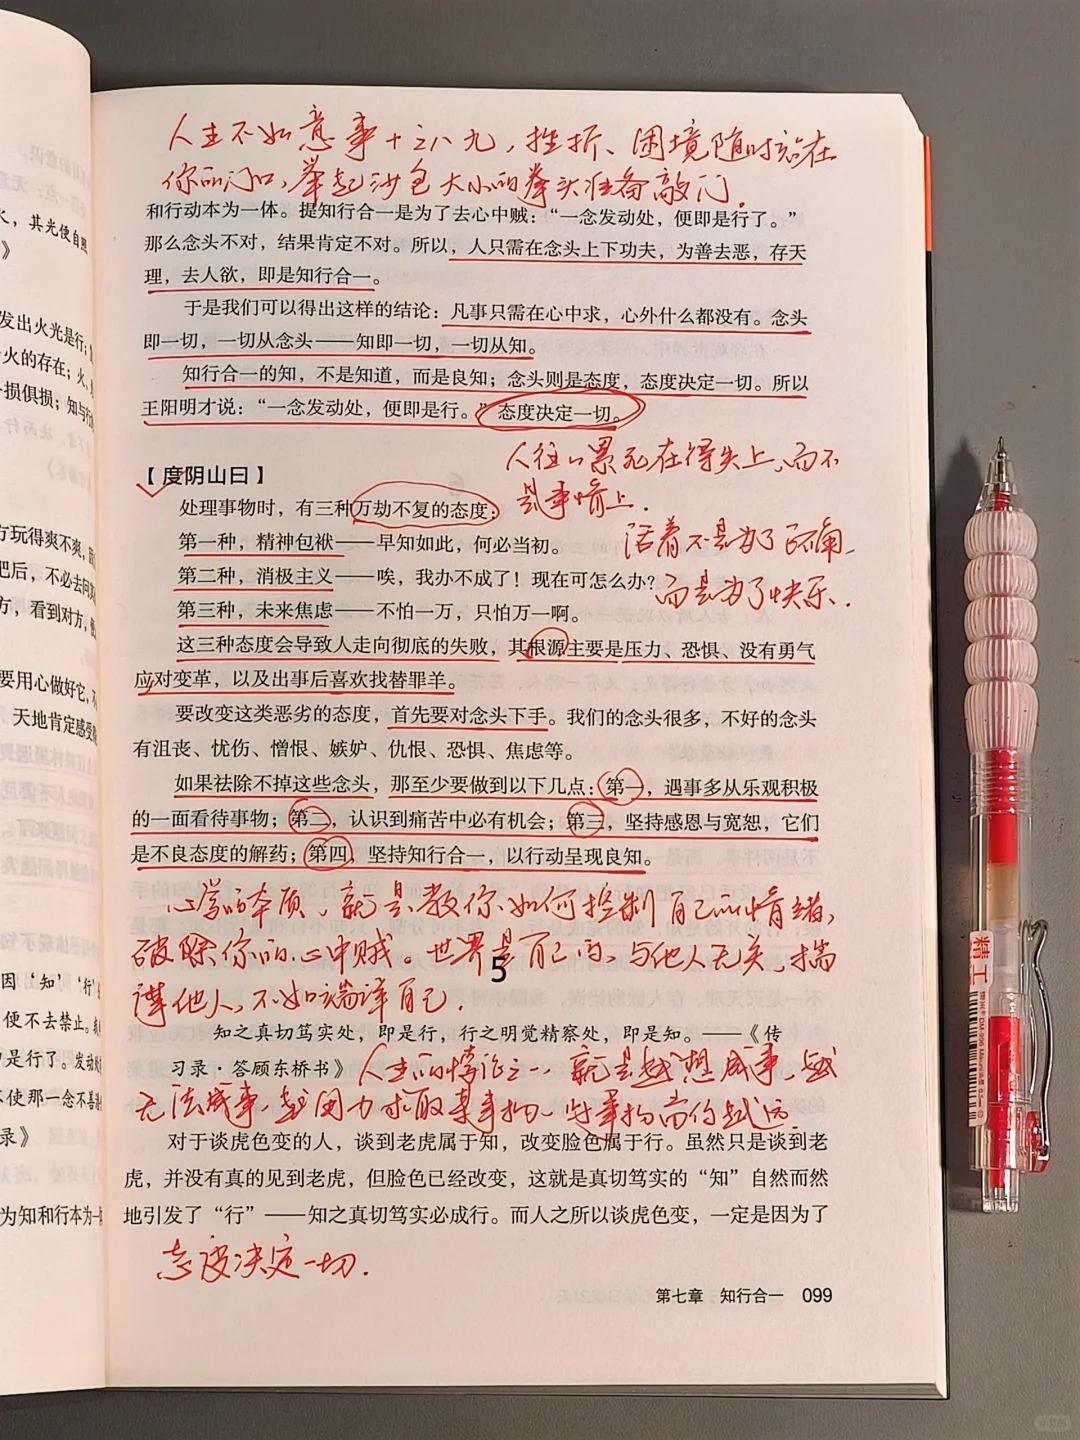 的意识。
火，其光便自照
》
发出火光是行；
火的存在；火、
损俱损；知与行
方玩得爽不爽，
把后，不必去问
方，看到对方，
要用心做好它，
天地肯定感受
因‘知’‘行’
便不去禁止。
是行了。发动
不使那一念不善
录》
为知和行本为一
人生不如意事十之八九，挫折、困境随时站在
你的门口，举起沙包大小的拳头准备敲门．
和行动本为一体。提知行合一是为了去心中贼：“一念发动处，便即是行了。”
那么念头不对，结果肯定不对。所以，人只需在念头上下功夫，为善去恶，存天
理，去人欲，即是知行合一。
于是我们可以得出这样的结论：凡事只需在心中求，心外什么都没有。念头
即一切，一切从念头——知即一切，一切从知。
知行合一的知，不是知道，而是良知；念头则是态度，态度决定一切。所以
王阳明才说：“一念发动处，便即是行。”态度决定一切。
人往往累死在得失上，而不
是事情上．
【度阴山曰】
处理事物时，有三种万劫不复的态度：
活着不是为了正确，
而是为了快乐．
第一种，精神包袱——早知如此，何必当初。
第二种，消极主义——唉，我办不成了！现在可怎么办？
第三种，未来焦虑——不怕一万，只怕万一啊。
这三种态度会导致人走向彻底的失败，其根源主要是压力、恐惧、没有勇气
应对变革，以及出事后喜欢找替罪羊。
要改变这类恶劣的态度，首先要对念头下手。我们的念头很多，不好的念头
有沮丧、忧伤、憎恨、嫉妒、仇恨、恐惧、焦虑等。
如果祛除不掉这些念头，那至少要做到以下几点：第一，遇事多从乐观积极
的一面看待事物；第二，认识到痛苦中必有机会；第三，坚持感恩与宽恕，它们
是不良态度的解药；第四，坚持知行合一，以行动呈现良知。
心学的本质，就是教你如何控制自己的情绪，
破除你的心中贼。世界是自己的，与他人无关，揣
5
谋他人，不如端详自己．
知之真切笃实处，即是行，行之明觉精察处，即是知。——《传
习录·答顾东桥书》
人生的悖论之一，就是越想成事，越
无法成事，越用力求取某事物，此事物离你越远．
对于谈虎色变的人，谈到老虎属于知，改变脸色属于行。虽然只是谈到老
虎，并没有真的见到老虎，但脸色已经改变，这就是真切笃实的“知”自然而然
地引发了“行”——知之真切笃实必成行。而人之所以谈虎色变，一定是因为了
态度决定一切．
第七章 知行合一 099
精工